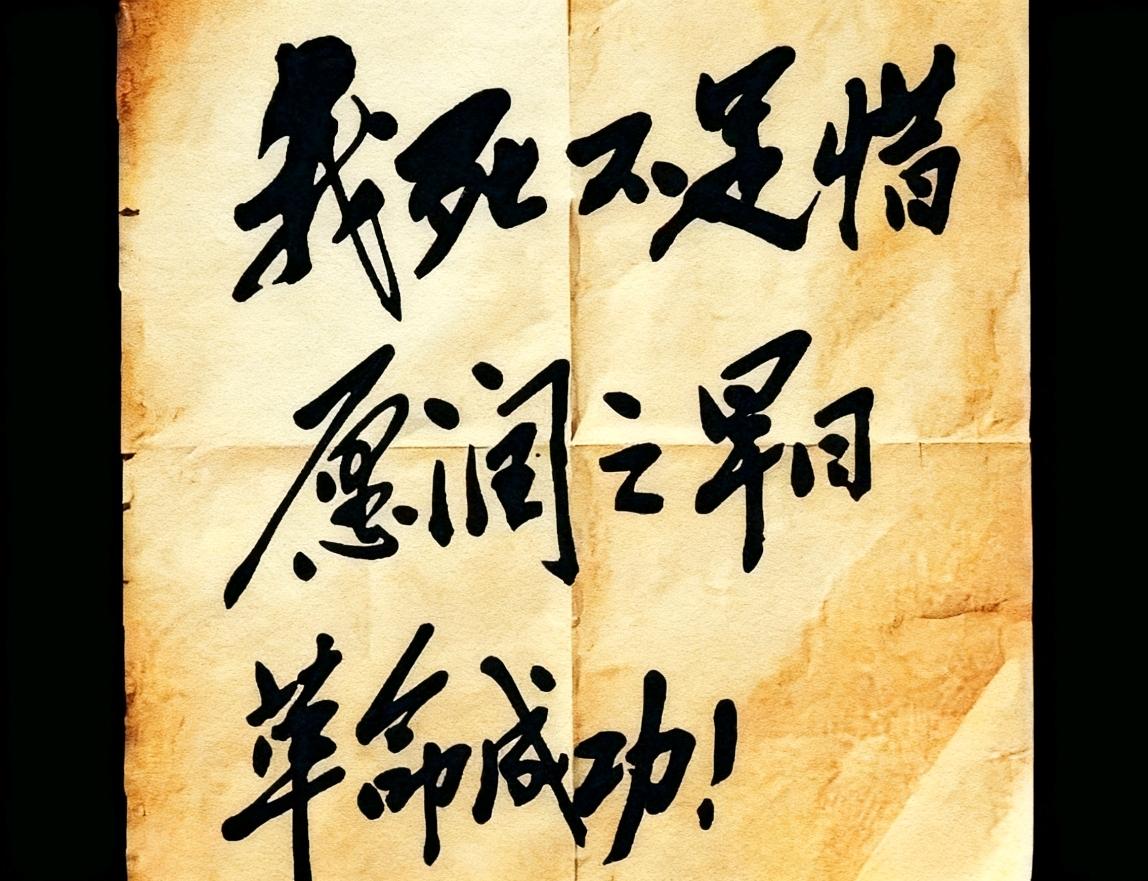 我死不足惜
愿润之早日
革命成功!